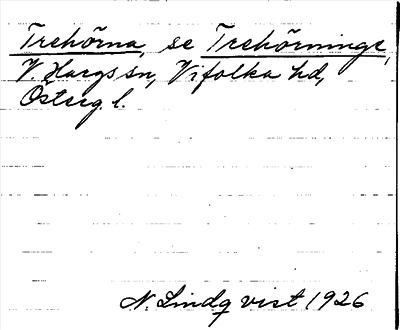 Trehörna, se Trehörninge,
V. Hargs sn, Vifolka hd,
Österg. l.
N. Lindqvist 1926